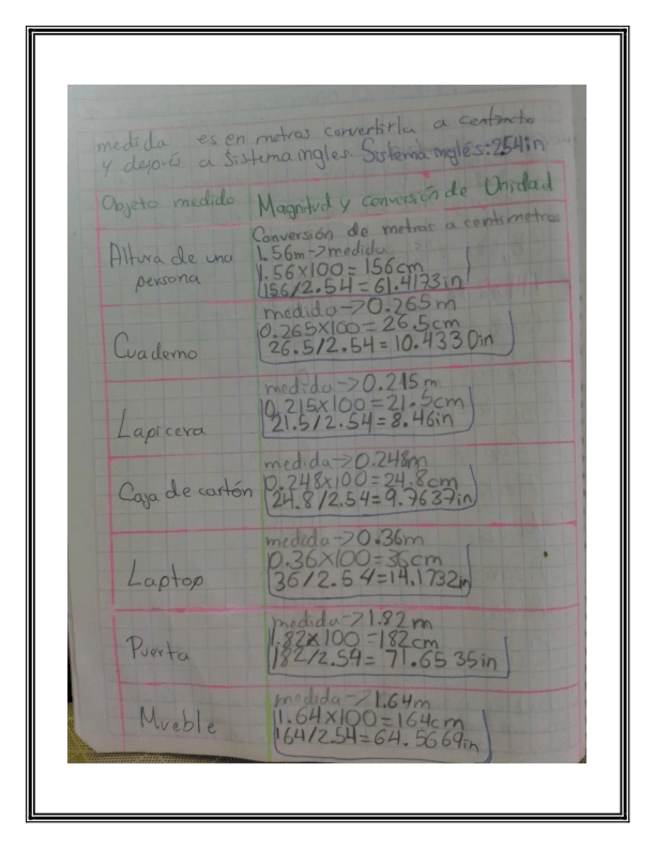 medida es en metros convertirla a centimetro
y depués a Sistema ingles. Sistema inglés:2.54in
Objeto medido Magnitud y conversión de Unidad
Conversión de metros a centimetros
Altura de una persona
1.56m->medida
1.56x100=156cm
156/2.54=61.4173in
Cuaderno
medida->0.265m
0.265x100=26.5cm
26.5/2.54=10.4330in
Lapicera
medida->0.215m
0.215x100=21.5cm
21.5/2.54=8.46in
Caja de cartón
medida->0.248m
0.248x100=24.8cm
24.8/2.54=9.7637in
Laptop
medida->0.36m
0.36x100=36cm
36/2.54=14.1732in
Puerta
medida->1.82m
1.82x100=182cm
182/2.54=71.6535in
Mueble
medida->1.64m
1.64x100=164cm
164/2.54=64.5669in